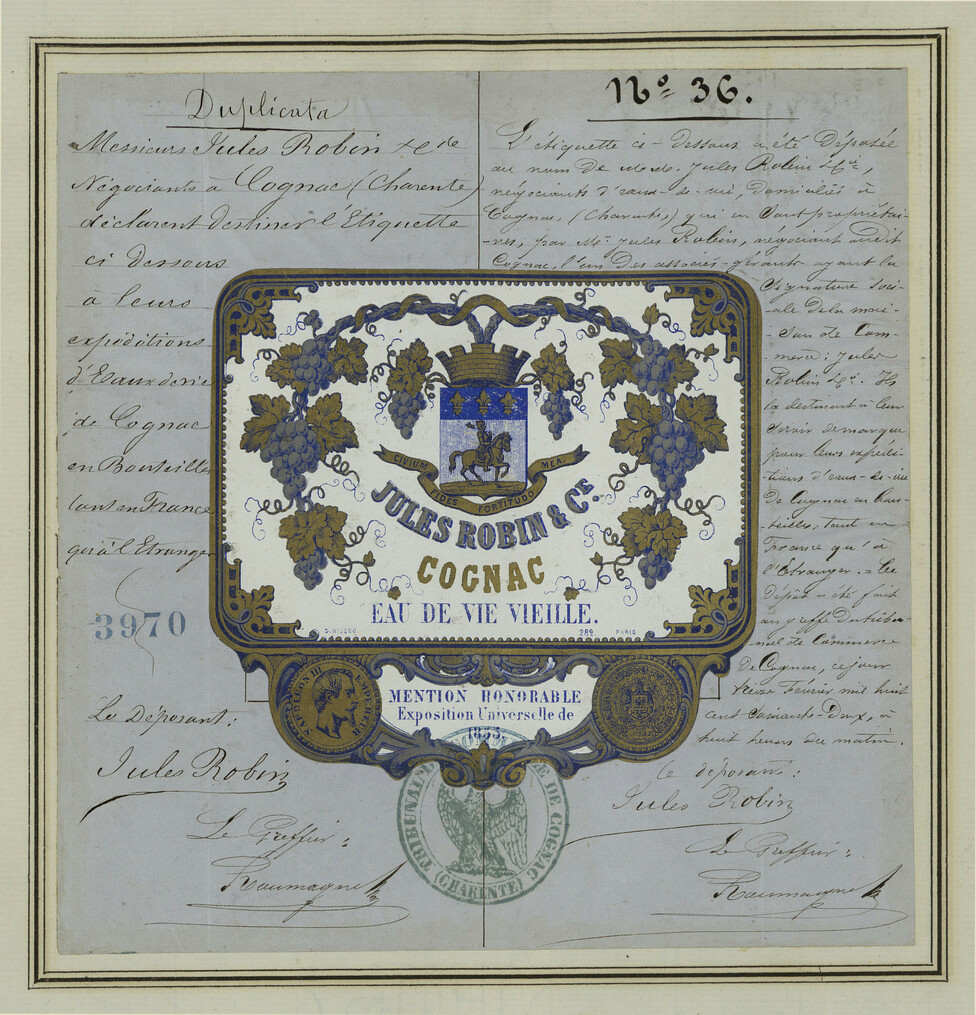 Duplicata
Messieurs Jules Robin & Cie
Négociants à Cognac (Charente)
déclarent Destiner l'Etiquette
ci dessous
à leurs
expéditions
d'Eaux de vie
de Cognac
en Bouteilles
tant en France
qu'à l'Etranger
3970
Le Déposant:
Jules Robin
Le Greffier:
No 36.
L'étiquette ci-Dessous a été Déposée
au nom de MM. Jules Robin & Cie,
négociants d'eaux-de-vie, domiciliés à
Cognac, (Charente) qui en sont propriétai-
-res, par Mr. Jules Robin, négociant audit
Cognac, l'un Des associés-gérants ayant la
Signature Soci-
-ale de la mai-
-son de Com-
-merce: Jules
Robin & Cie. Ils
la destinent à leur
servir de marque
pour leurs expédi-
-tions d'eaux-de-vie
de Cognac en bou-
-teilles, tant en
France qu'à
l'Etranger. = Ce
dépôt a été fait
au greffe du tribu-
-nal de Commerce
De Cognac, ce jour
treize Février mil huit
cent soixante-Deux, à
huit heures du matin.
le déposant:
Jules Robin
Le Greffier:
CIVIUM FIDES FORTITUDO MEA.
JULES ROBIN & CE
COGNAC
EAU DE VIE VIEILLE.
289 PARIS
NAPOLEON III EMPEREUR
MENTION HONORABLE
Exposition Universelle de
1855.
TRIBUNAL DE COMMERCE DE COGNAC
(CHARENTE)